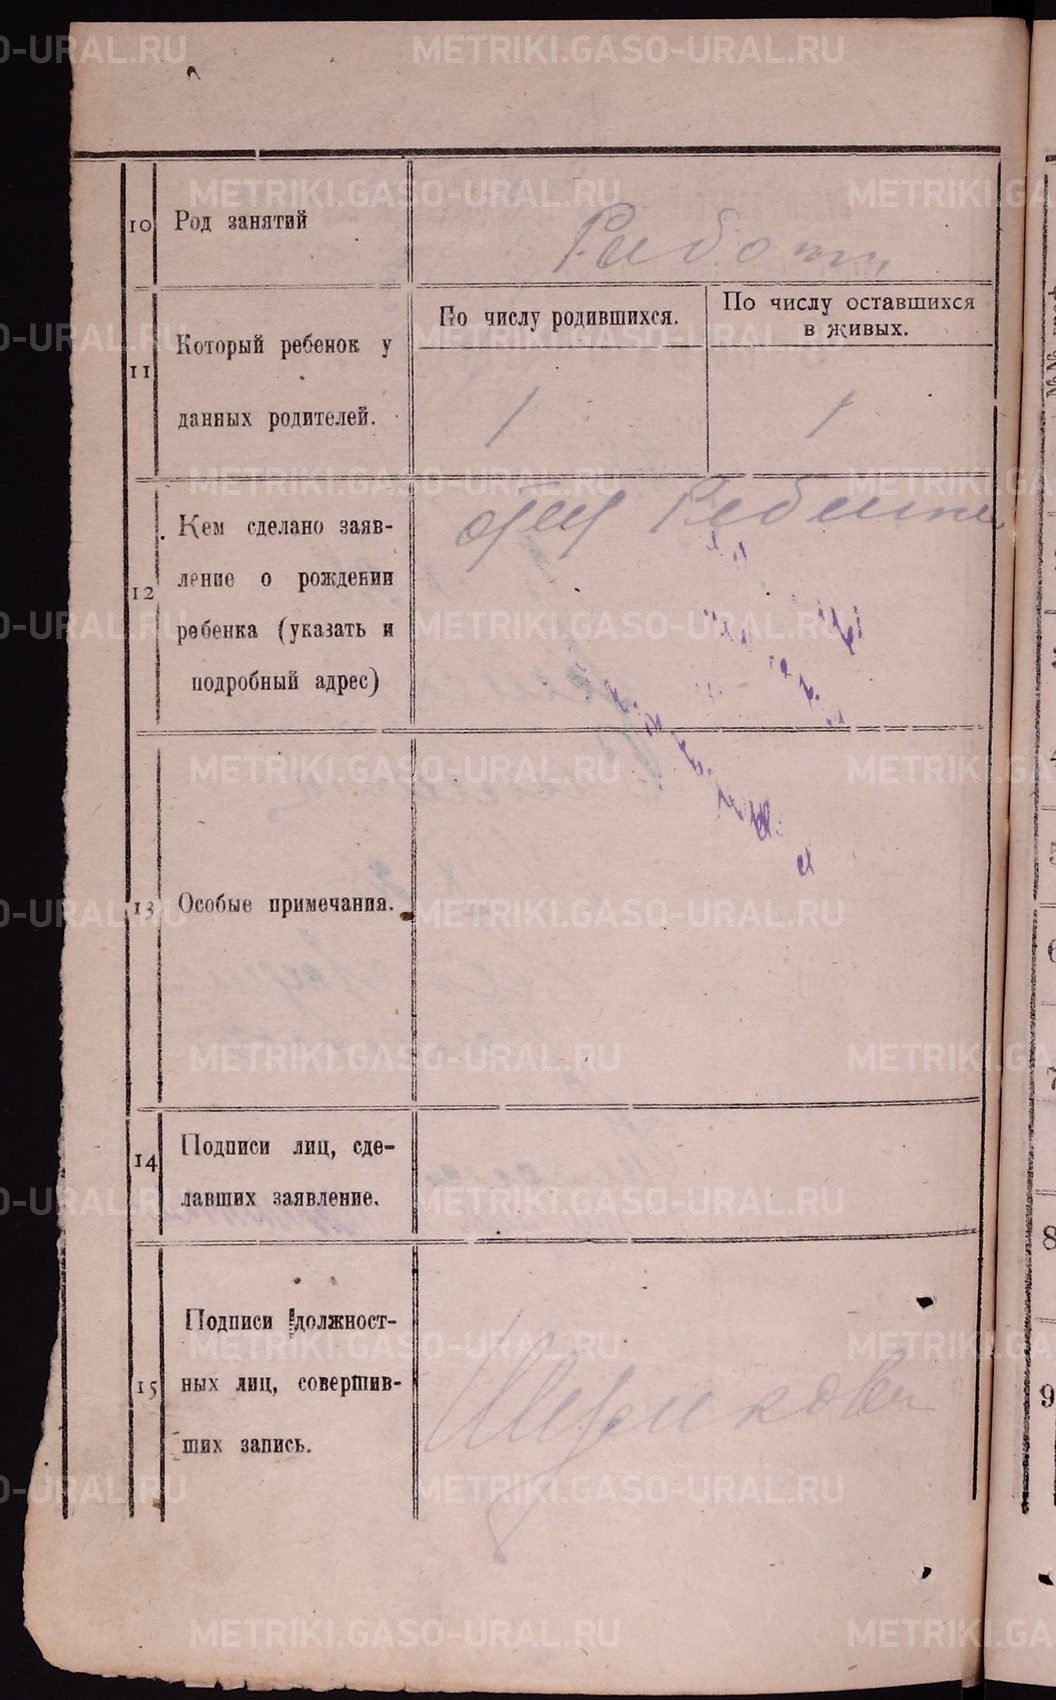 METRIKI.GASO-URAL.RU
10 Род занятий
11 Который ребенок у
данных родителей.
По числу родившихся.
По числу оставшихся
в живых.
1
1
12 Кем сделано заяв-
ление о рождении
ребенка (указать и
подробный адрес)
отец
13 Особые примечания.
14 Подписи лиц, сде-
лавших заявление.
15 Подписи должност-
ных лиц, совершив-
ших запись.
8
9